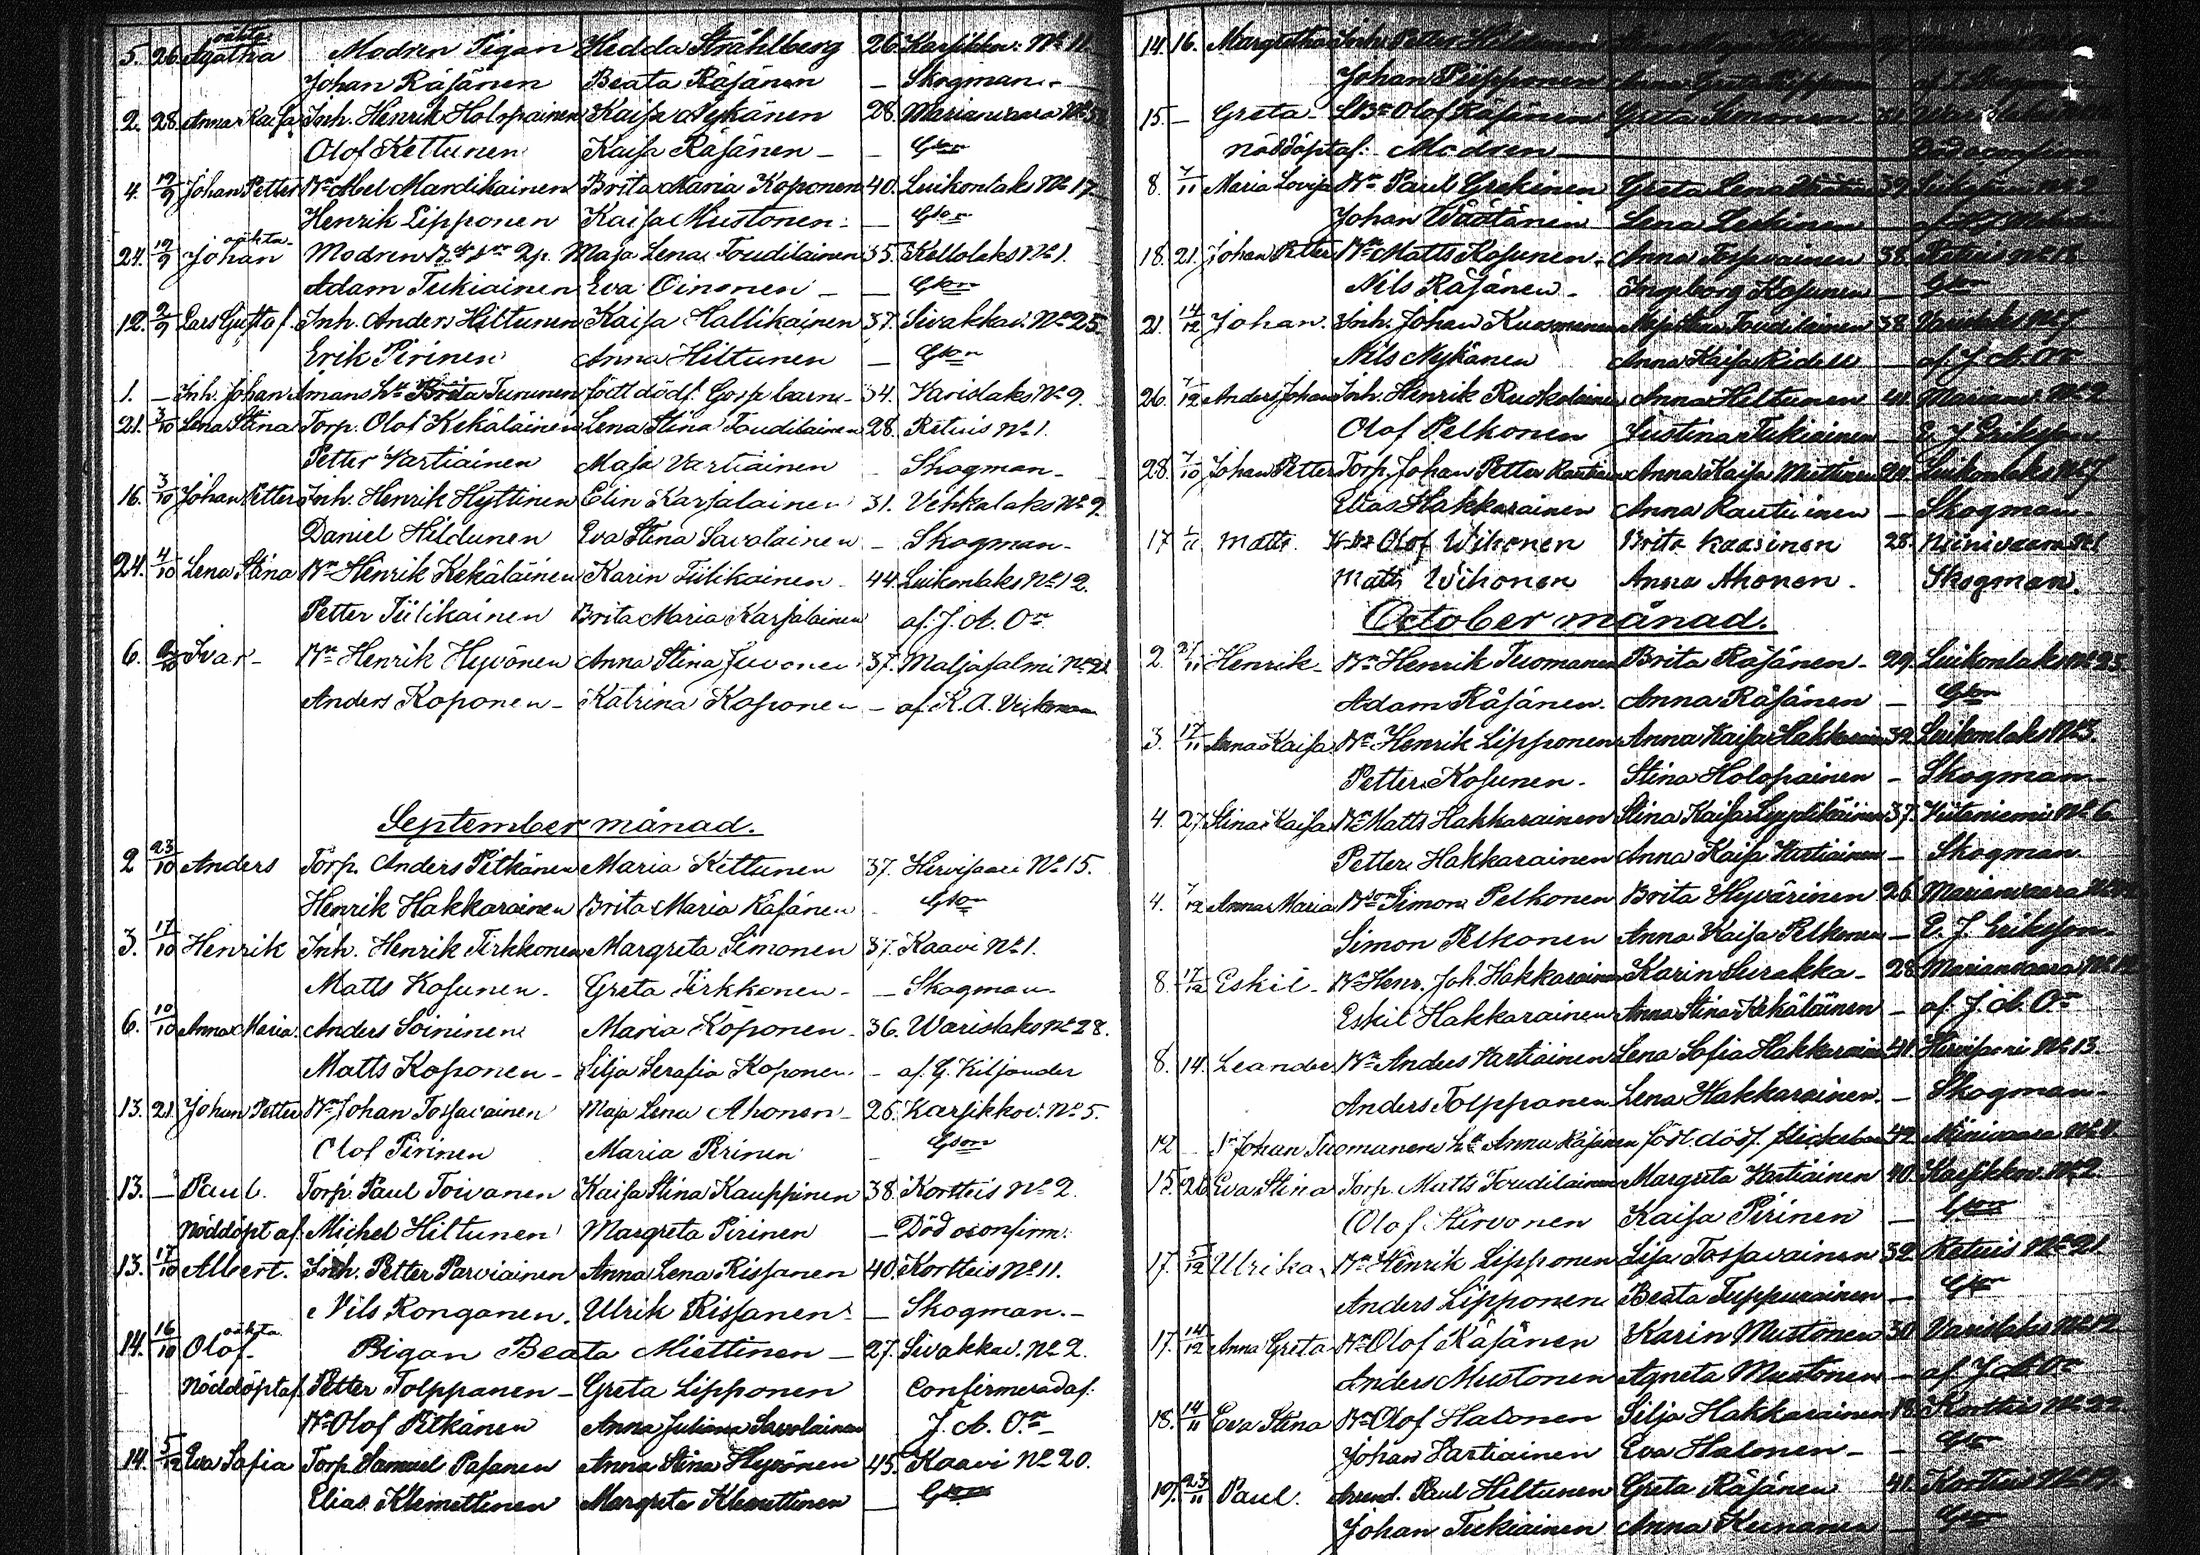 5. 26. Agatha oäkta Modren Pigan Hedda Stråhlberg 26. Karsikkov: No 11
Johan Räsänen Beata Räsänen - Skogman -
2. 28. Anna Kaisa Inh. Henrik Holopainen Kaisa Nykänen 28. Marianvaara No
Olof Kettunen Kaisa Räsänen - -
4. 19/9 Johan Petter Bn Abel Mardikainen Brita Maria Koponen 40. Luikonlaks No 17
Henrik Lipponen Kaisa Mustonen -
24. 19/9 Johan oäkta Modren Maja Lena Toudilainen 35. Kallolaks No 1.
Adam Tukiainen Eva Oinonen -
12. 2/9 Lars Gustaf. Inh. Anders Hiltunen Kaisa Hallikainen 37. Sivakkav. No 25.
Erik Pirinen Anna Hiltunen -
1. - Inh. Johan Amans hu Brita Turunen född dödf. Gossebarn - 34. Varislaks No 9.
21. 3/10 Lena Stina Torp. Olof Kekäläinen Lena Stina Toudilainen 28. Retuis No 1.
Petter Vartiainen Maja Vartiainen - Skogman -
16. 3/10 Johan Petter Inh. Henrik Hyttinen Elin Karjalainen 31. Vehkalaks No 9.
Daniel Hildunen Eva Stina Savolainen - Skogman -
24. 4/10 Lena Stina Bn Henrik Kekäläinen Karin Tiilikainen 44. Luikonlaks No 12.
Petter Tiilikainen Brita Maria Karjalainen af. J. A. On
6. Ivar - Bn Henrik Hyvönen Anna Stina Juvonen 37. Maljasalmi No 21
Anders Koponen - Katrina Koponen - af K. A.
September månad.
2 23/10 Anders Torp. Anders Pitkänen Maria Kettunen 37. Hirvisaari No 15.
Henrik Hakkarainen Brita Maria Räsänen -
3. 17/10 Henrik Inh. Henrik Tirkkonen Margreta Simonen 37. Kaavi No 1.
Matts Kosunen. Greta Tirkkonen - - Skogman -
6. 10/10 Anna Maria. Anders Soininen Maria Koponen - 36. Warislaks No 28.
Matts Koponen - Silja Serafia Koponen - af. G. Kiljander
13. 21. Johan Petter Bn Johan Tossavainen Maja Lena Ahonen - 26. Karsikkov. No 5.
Olof Pirinen Maria Pirinen -
13. - Paul. Torp. Paul Toivanen Kaisa Stina Kauppinen 38. Kortteis No 2.
Nöddöpt af Michel Hiltunen Margreta Pirinen - Död oconfirm.
13. 17/10 Albert. Inh. Petter Parviainen Anna Lena Rissanen 40. Kortteis No 11.
Nils Ronganen. Ulrik Rissanen - - Skogman. -
14. 16/10 Olof oäkta Pigan Beata Miettinen - 27. Sivakkav. No 2.
Nöddöpt af. Petter Tolppanen - Greta Lipponen Confirmerad af:
Bn Olof Pitkänen Anna Juliana Savolainen J. A. On -
14. 5/12 Eva Sofia Torp. Samuel Pasanen Anna Stina Hyvönen 45. Kaavi No 20.
Elias Klemettinen Margreta Klemettinen -
14. 16. Margretha Inh. Petter
Johan Piipponen
15. - Greta - Olof Räsänen Greta Simonen
nöddöpt af: Modren
8. 7/11 Maria Lovisa Bn Paul Greta Lena 39.
Johan Väätänen Lena
18. 21. Johan Petter Bn Matts Kosunen - Anna Tossavainen 38. Retuis No 18
Nils Räsänen - Ingeborg Kosunen -
21. 14/12 Johan. Inh. Johan Kuosmanen Maja Stina Toudilainen 38. Varislaks No 7
Nils Nykänen Anna Kaisa Ridell - af J. A. On
26. 7/12 Anders Johan Inh. Henrik Ruokolainen Anna Hiltunen 41. Marianv. No 2
Olof Pelkonen Justina Tukiainen - E. J. Eriksson
28. 7/10 Johan Petter Torp. Johan Petter Rautiainen Anna Kaisa Miettinen 24. Luikonlaks No 7
Elias Hakkarainen Anna Rautiainen - Skogman -
17 1/11 Matts. Olof Wihonen Brita Kaasinen 28. Niinivaara No 1
Matts Wihonen Anna Ahonen. Skogman.
October månad.
2. 21/11 Henrik - Bn Henrik Tuomanen Brita Räsänen - 29. Luikonlaks No 25.
Adam Räsänen. Anna Räsänen -
3. 17/11 Anna Kaisa Bn Henrik Lipponen Anna Kaisa Hakkarainen 32. Luikonlaks No 3.
Petter Kosunen - Stina Holopainen - Skogman -
4. 27. Stina Kaisa Bn Matts Hakkarainen Stina Kaisa Lyydikäinen 37. Viitaniemi No 6
Petter Hakkarainen Anna Kaisa Vartiainen - Skogman.
4. 7/12 Anna Maria Bson Simon Pelkonen Brita Hyvärinen 26. Marianvaara No
Simon Pelkonen Anna Kaisa Pelkonen - E. J. Eriksson -
8. 17/12 Eskil - Bn Henr. Joh. Hakkarainen Karin Surakka - 28. Marianvaara No
Eskil Hakkarainen Anna Stina Kekäläinen - af. J. A. On
8. 14. Leander Bn Anders Vartiainen Lena Sofia Hakkarainen 41. Hirvisaari No 13.
Anders Tolppanen Lena Hakkarainen. - Skogman -
12 - Johan Tuomanens hu Anna Räsänen född dödf. flickebarn 42. Niinivaara No
15. 26. Eva Stina Torp. Matts Toudilainen Margreta Vartiainen 40. Karsikkov. No 2.
Olof Hirvonen Kaisa Pirinen -
17. 5/12 Ulrika Bn Henrik Lipponen Lisa Tossavainen 32 Retuis No 21
Anders Lipponen Beata Tuppurainen -
17. 14/12 Anna Greta Bn Olof Räsänen Karin Mustonen 30. Varislaks No 12
Anders Mustonen Agneta Mustonen - af J. A. On
18. 14/11 Eva Stina Bn Olof Halonen Silja Hakkarainen 18. Kortteis No 22
Johan Partiainen Eva Halonen - -
19. 23/11 Paul. Arend. Paul Hiltunen Greta Räsänen 41. Kortteis No 19
Johan Tukiainen Anna Keinanen -